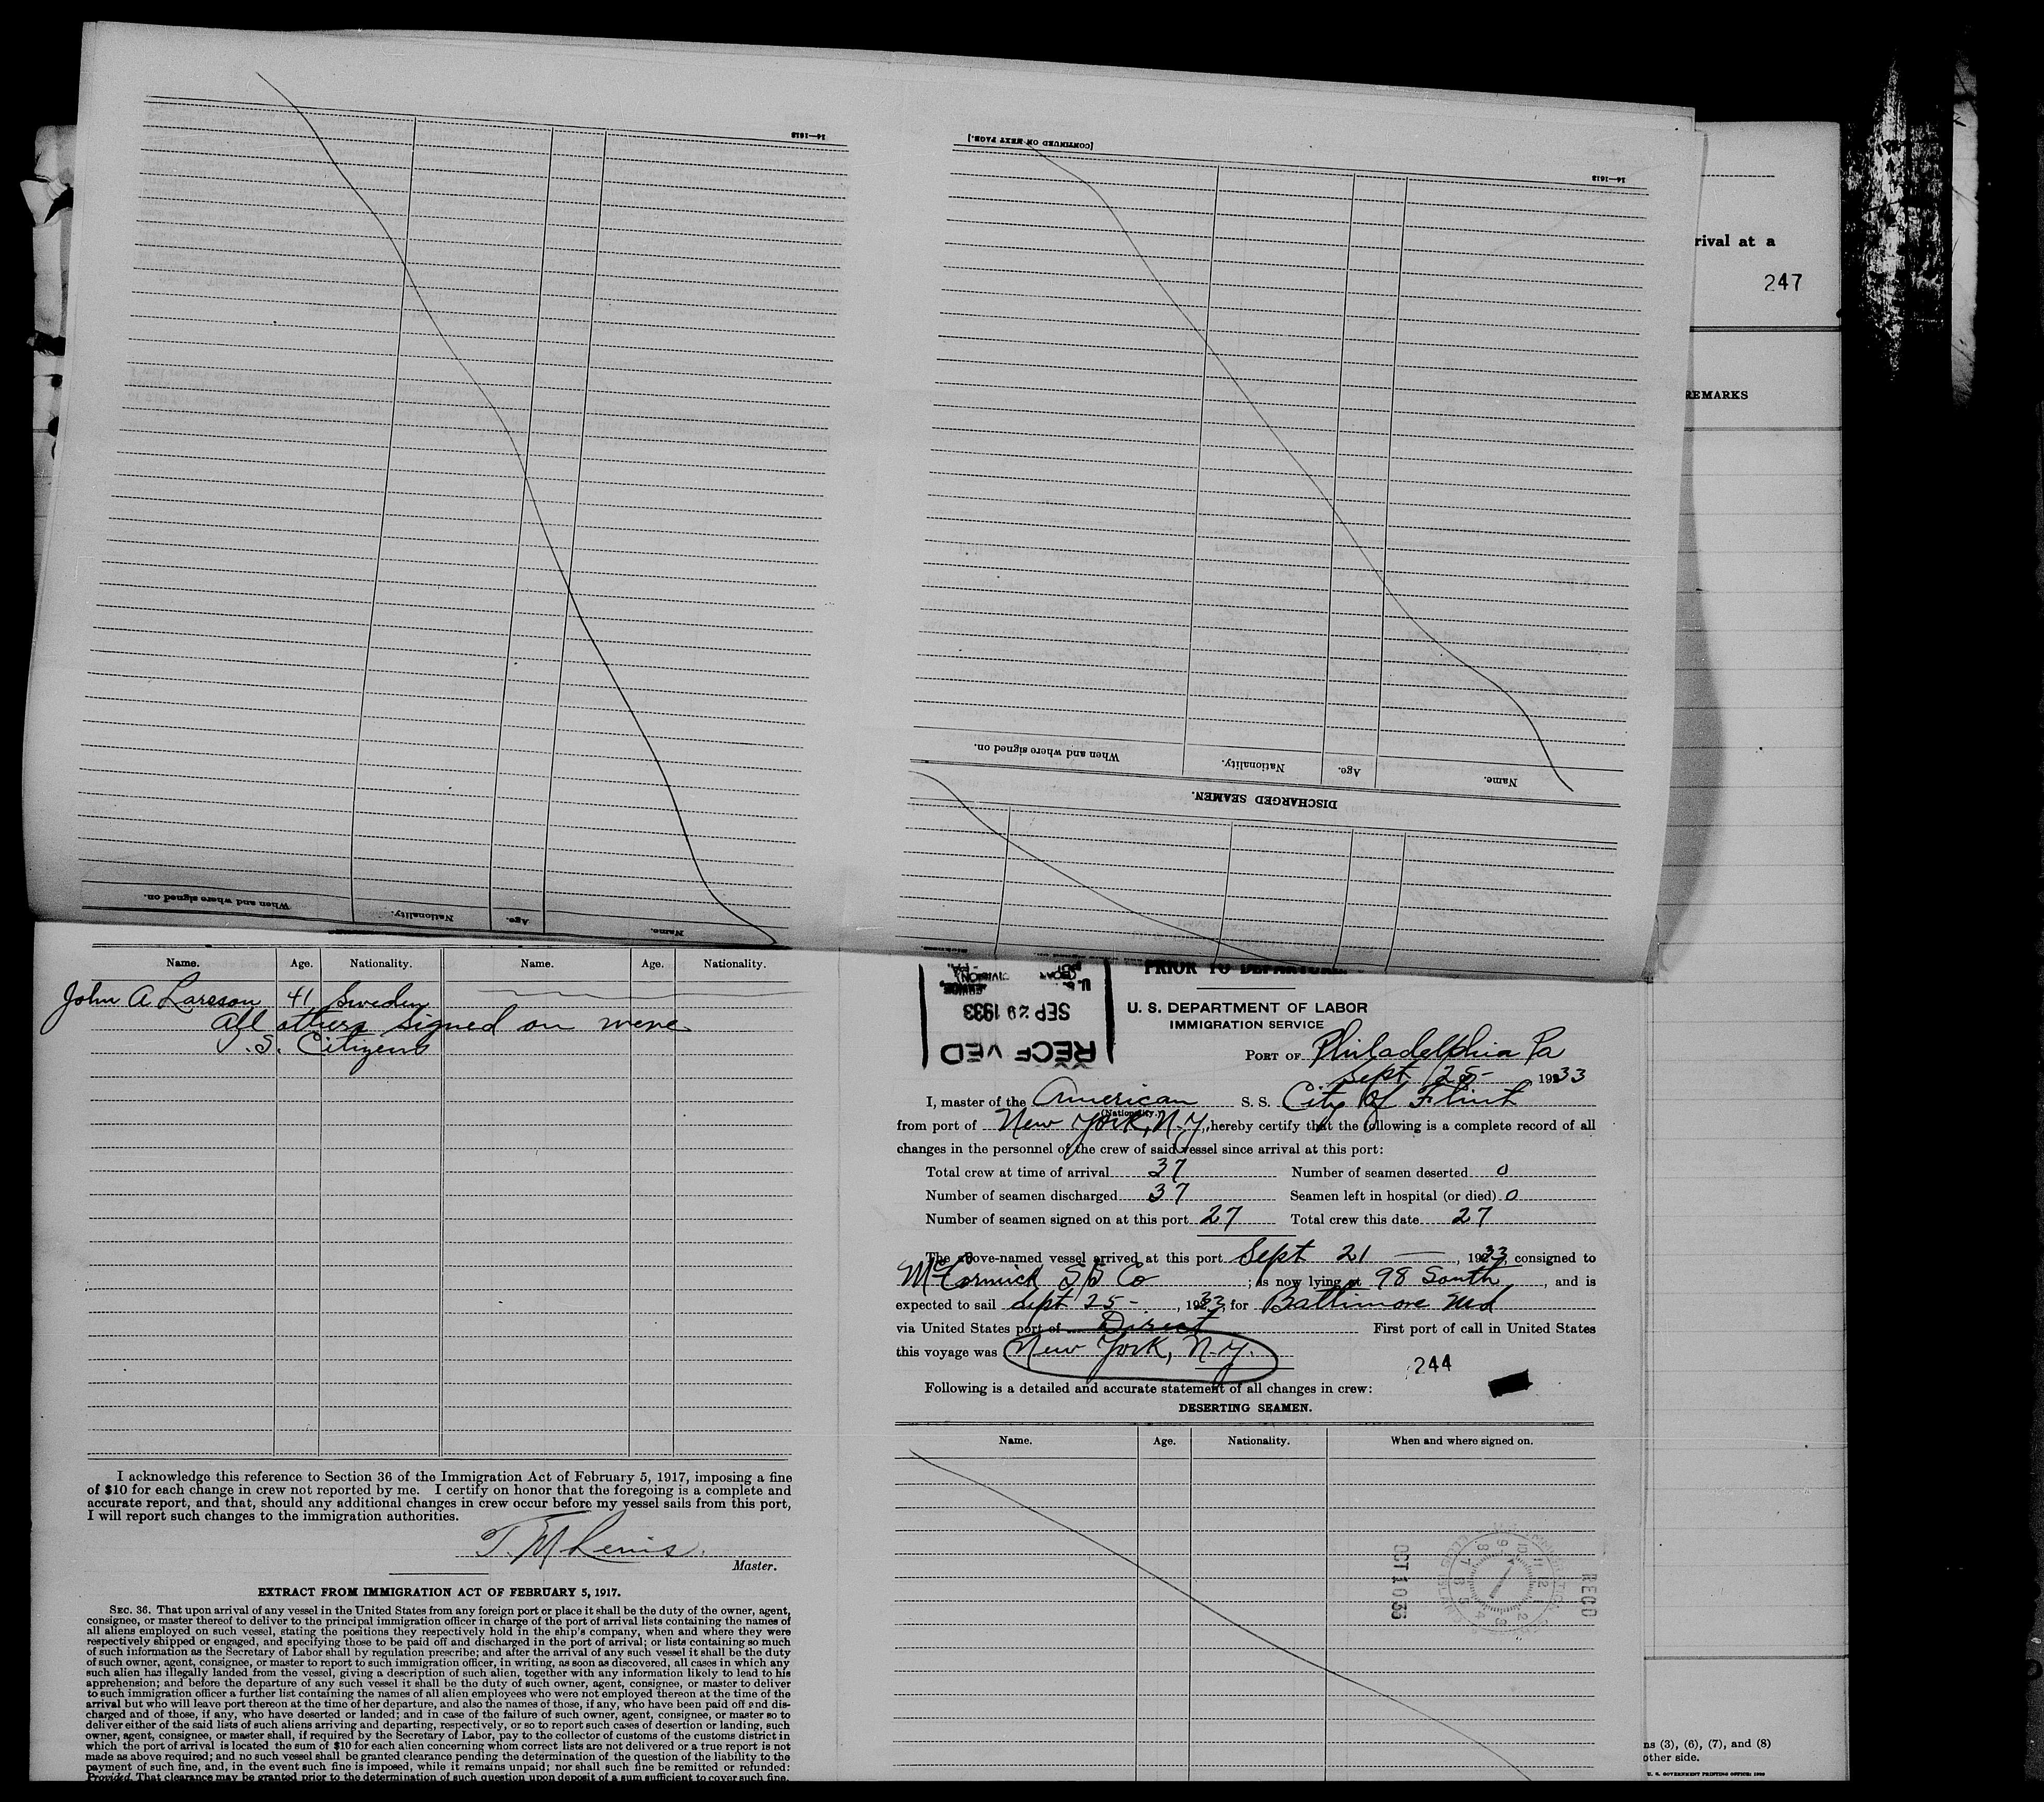 14—1613
[CONTINUED ON NEXT PAGE.]
14—1613
rival at a
247
REMARKS
When and where signed on.
Nationality.
Age.
Name.
DISCHARGED SEAMEN.
When and where signed on.
Nationality.
Age.
Name.
Name. Age. Nationality. Name. Age. Nationality.
John A Larsson 41 Sweden
All others signed on were
U.S. Citizens
I acknowledge this reference to Section 36 of the Immigration Act of February 5, 1917, imposing a fine
of $10 for each change in crew not reported by me. I certify on honor that the foregoing is a complete and
accurate report, and that, should any additional changes in crew occur before my vessel sails from this port,
I will report such changes to the immigration authorities.
T. M
Master.
EXTRACT FROM IMMIGRATION ACT OF FEBRUARY 5, 1917.
SEC. 36. That upon arrival of any vessel in the United States from any foreign port or place it shall be the duty of the owner, agent,
consignee, or master thereof to deliver to the principal immigration officer in charge of the port of arrival lists containing the names of
all aliens employed on such vessel, stating the positions they respectively hold in the ship's company, when and where they were
respectively shipped or engaged, and specifying those to be paid off and discharged in the port of arrival; or lists containing so much
of such information as the Secretary of Labor shall by regulation prescribe; and after the arrival of any such vessel it shall be the duty
of such owner, agent, consignee, or master to report to such immigration officer, in writing, as soon as discovered, all cases in which any
such alien has illegally landed from the vessel, giving a description of such alien, together with any information likely to lead to his
apprehension; and before the departure of any such vessel it shall be the duty of such owner, agent, consignee, or master to deliver
to such immigration officer a further list containing the names of all alien employees who were not employed thereon at the time of the
arrival but who will leave port thereon at the time of her departure, and also the names of those, if any, who have been paid off and dis-
charged and of those, if any, who have deserted or landed; and in case of the failure of such owner, agent, consignee, or master so to
deliver either of the said lists of such aliens arriving and departing, respectively, or so to report such cases of desertion or landing, such
owner, agent, consignee, or master shall, if required by the Secretary of Labor, pay to the collector of customs of the customs district in
which the port of arrival is located the sum of $10 for each alien concerning whom correct lists are not delivered or a true report is not
made as above required; and no such vessel shall be granted clearance pending the determination of the question of the liability to the
payment of such fine, and, in the event such fine is imposed, while it remains unpaid; nor shall such fine be remitted or refunded:
Provided, That clearance may be granted prior to the determination of such question upon deposit of a sum sufficient to cover such fine.
PRIOR TO DEPARTURE
SEP 29 1933
RECEIVED
U. S. DEPARTMENT OF LABOR
IMMIGRATION SERVICE
PORT OF Philadelphia Pa
Sept 25- 1933
I, master of the American S. S. City Of Flint
(Nationality.)
from port of New York, N.Y., hereby certify that the following is a complete record of all
changes in the personnel of the crew of said vessel since arrival at this port:
Total crew at time of arrival 37 Number of seamen deserted 0
Number of seamen discharged 37 Seamen left in hospital (or died) 0
Number of seamen signed on at this port 27 Total crew this date 27
The above-named vessel arrived at this port Sept 21 —, 1933, consigned to
McCormick S/S Co ; is now lying at 98 South, and is
expected to sail Sept 25-, 1933, for Baltimore Md
via United States port of Direct First port of call in United States
this voyage was New York, N.Y.
244
Following is a detailed and accurate statement of all changes in crew:
DESERTING SEAMEN.
Name. Age. Nationality. When and where signed on.
OCT 10 33
RECD
ns (3), (6), (7), and (8)
other side.
U. S. GOVERNMENT PRINTING OFFICE: